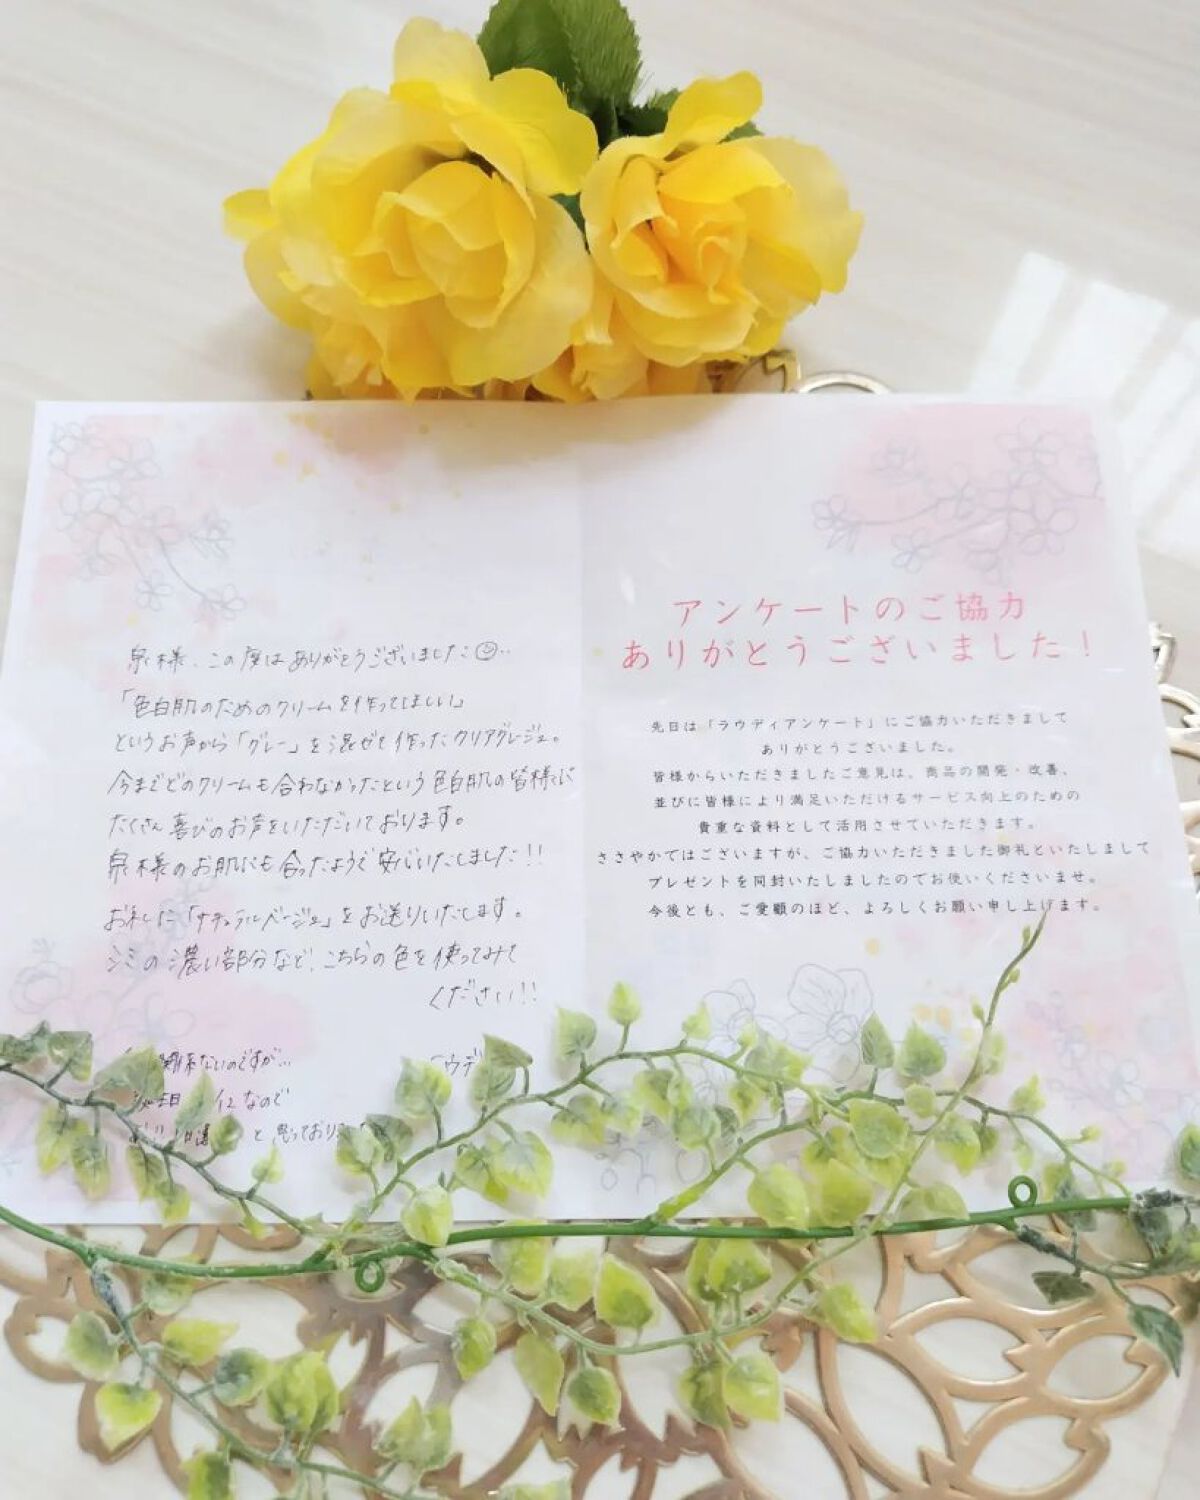 泉様、この度はありがとうございました
「色白肌のためのクリームを作ってほしい」
というお声から「グレー」を混ぜて作ったクリアグレージュ。
今までどのクリームも合わなかったという色白肌の皆様に
たくさん喜びのお声をいただいております。
泉様のお肌にも合ったようで安心いたしました!!
お礼に「ナチュラルベージュ」をお送りいたします。
シミの濃い部分など、こちらの色を使ってみて
ください!!
関係ないのですが…
なので
と思っており
ウデ
アンケートのご協力
ありがとうございました！
先日は「ラウディアンケート」にご協力いただきまして
ありがとうございました。
皆様からいただきましたご意見は、商品の開発・改善、
並びに皆様により満足いただけるサービス向上のための
貴重な資料として活用させていただきます。
ささやかではございますが、ご協力いただきました御礼といたしまして
プレゼントを同封いたしましたのでお使いくださいませ。
今後とも、ご愛顧のほど、よろしくお願い申し上げます。